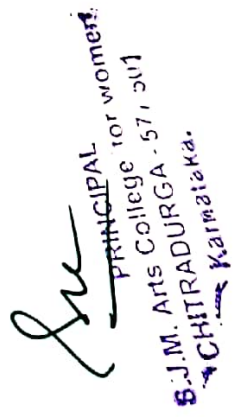 PRINCIPAL
S.J.M. Arts College for women
CHITRADURGA - 577 501
Karnataka.